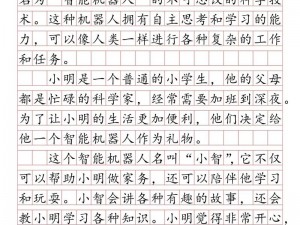 名为"智能机器人"的不可思议的科学技
术。这种机器人拥有自主思考和学习的能
力，可以像人类一样进行各种复杂的工作
和任务。
小明是一个普通的小学生，他的父母
都是忙碌的科学家，经常需要加班到深夜。
为了让小明的生活更加便利，他们决定给
他一个智能机器人作为礼物。
这个智能机器人名叫“小智”，它不仅
可以帮助小明做家务，还可以陪伴他学习
和玩耍。小智会讲各种有趣的故事，还会
教小明学习各种知识。小明觉得非常开心，